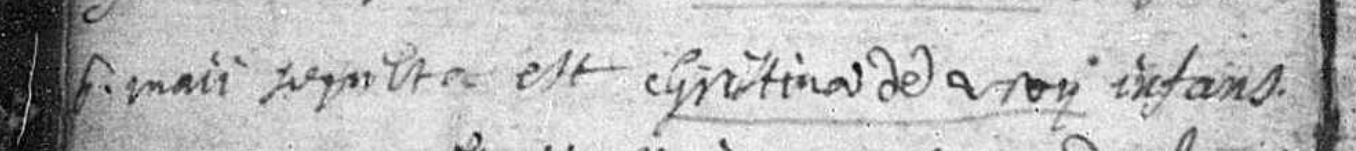 6. maii sepulta est Christina de vroy infans.